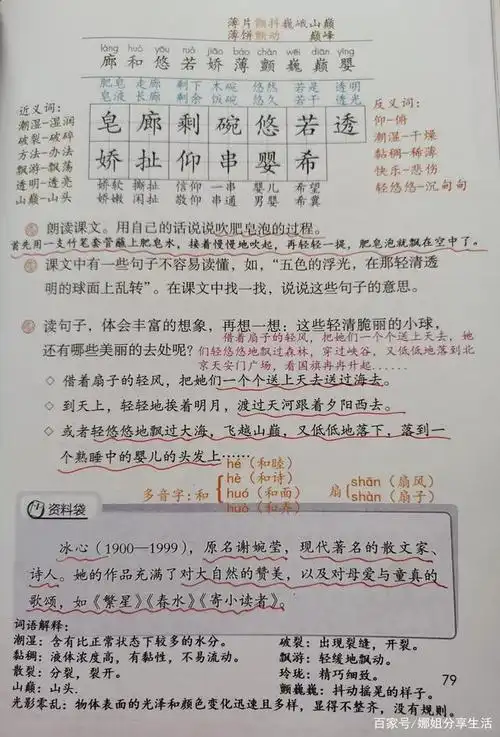 薄片颤抖巍峨山巅
薄饼颤动 巅峰
láng huò yōu ruò jiāo báo chàn wēi diān yīng
廊 和 悠 若 娇 薄 颤 巍 巅 婴
肥皂 走廊 剩下 木碗 悠然 若是 透明
皂液 长廊 剩余 饭碗 悠久 若干 透光
皂 廊 剩 碗 悠 若 透
娇 扯 仰 串 婴 希
娇软 撕扯 信仰 一串 婴儿 希望
娇嫩 闲扯 敬仰 串通 男婴 希冀
近义词:
潮湿-湿润
破裂-破碎
方法-办法
飘游-飘荡
透明-透亮
山巅-山头
反义词:
仰-俯
潮湿-干燥
黏稠-稀薄
快乐-悲伤
轻悠悠-沉甸甸
朗读课文。用自己的话说说吹肥皂泡的过程。
首先用一支竹笔套管蘸上肥皂水，接着慢慢地吹起，再轻轻一提，肥皂泡就飘在空中了。
课文中有一些句子不容易读懂，如，“五色的浮光，在那轻清透
明的球面上乱转”。在课文中找一找，说说这些句子的意思。
读句子，体会丰富的想象，再想一想：这些轻清脆丽的小球，
还有哪些美丽的去处呢？
借着扇子的轻风，把她们一个个送上天去，她
们轻悠悠地飘过森林，穿过峡谷，又低低地落到北
京天安门广场，看国旗冉冉升起......
◇ 借着扇子的轻风，把她们一个个送上天去送过海去。
◇ 到天上，轻轻地挨着明月，渡过天河跟着夕阳西去。
◇ 或者轻悠悠地飘过大海，飞越山巅，又低低地落下，落到一
个熟睡中的婴儿的头发上……
多音字：和
hé（和睦）
hè（和诗）
huó（和面）
huò（和弄）
扇
shān（扇风）
shàn（扇子）
资料袋
冰心（1900—1999），原名谢婉莹，现代著名的散文家、
诗人。她的作品充满了对大自然的赞美，以及对母爱与童真的
歌颂，如《繁星》《春水》《寄小读者》。
词语解释:
潮湿：含有比正常状态下较多的水分。
黏稠：液体浓度高，有黏性，不易流动。
散裂：分裂，裂开。
山巅：山头.
破裂：出现裂缝，开裂.
飘游：轻缓地飘动。
玲珑：精巧细致。
颤巍巍：抖动摇晃的样子。
光影零乱：物体表面的光泽和颜色变化迅速且多样，显得不整齐，没有规则。
79
百家号/娜姐分享生活